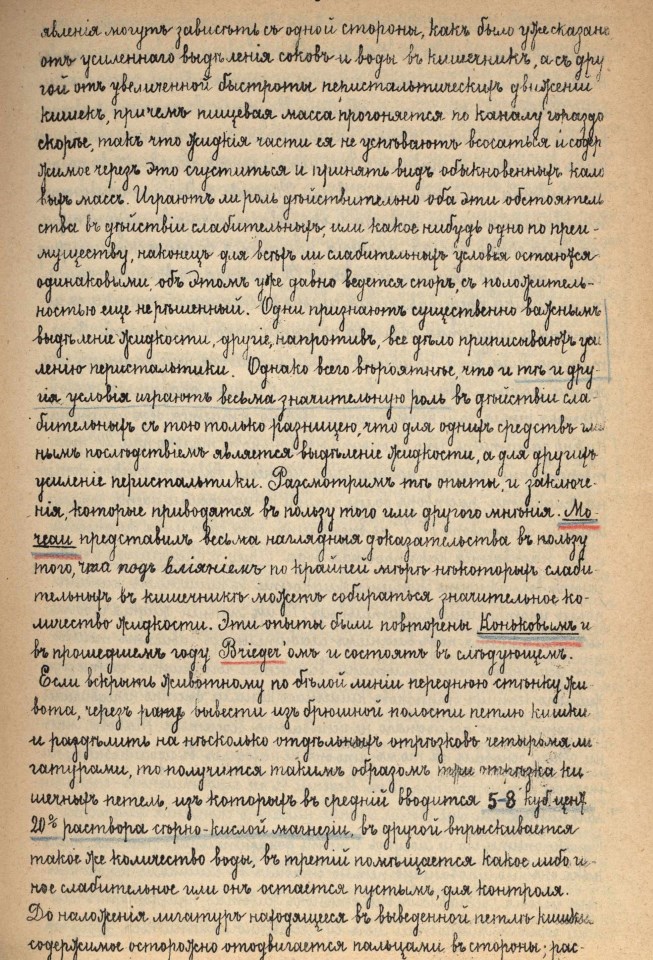 явленiя могутъ зависѣть съ одной стороны, какъ было уже сказано
отъ усиленнаго выдѣленiя соковъ и воды въ кишечникъ, а съ дру
гой отъ увеличенной быстроты перистальтическихъ движенiй
кишекъ, причемъ пищевая масса прогоняется по каналу гораздо
скорѣе, такъ что жидкiя части ея не успѣваютъ всосаться и содер
жимое черезъ это сгуститься и принять видъ обыкновенныхъ кало
выхъ массъ. Играютъ ли роль дѣйствительно оба эти обстоятель
ства въ дѣйствiи слабительныхъ, или какое нибудь одно по преи-
муществу, наконецъ для всѣхъ ли слабительныхъ условiя остаются
одинаковыми, объ этомъ уже давно ведется споръ, съ положитель-
ностью еще нерѣшенный. Одни признаютъ существенно важнымъ
выдѣленiе жидкости, другiе, напротивъ, все дѣло приписываютъ уси
ленiю перистальтики. Однако всего вѣроятнѣе, что и тѣ и дру-
гiя условiя играютъ весьма значительную роль въ дѣйствiи сла-
бительныхъ съ тою только разницею, что для однихъ средствъ глав
нымъ послѣдствiемъ является выдѣленiе жидкости, а для другихъ
усиленiе перистальтики. Разсмотримъ тѣ опыты, и заключе-
нiя, которые приводятся въ пользу того или другого мнѣнiя. Мо-
чеаи представилъ весьма наглядныя доказательства въ пользу
того, что подъ влiянiемъ по крайней мѣрѣ нѣкоторыхъ слаби-
тельныхъ въ кишечникѣ можетъ собираться значительное ко-
личество жидкости. Эти опыты были повторены Коньковымъ и
въ прошедшемъ году Brieger'омъ и состоятъ въ слѣдующемъ.
Если вскрыть животному по бѣлой линiи переднюю стѣнку жи-
вота, черезъ рану вывести изъ брюшной полости петлю кишки
и раздѣлить на нѣсколько отдѣльныхъ отрѣзковъ четырьмя ли-
гатурами, то получится такимъ образомъ три отрѣзка ки-
шечныхъ петель, изъ которыхъ въ среднiй вводится 5-8 куб. цент.
20% раствора сѣрно-кислой магнезiи, въ другой впрыскивается
такое же количество воды, въ третiй помѣщается какое либо и-
ное слабительное или онъ остается пустымъ, для контроля.
До наложенiя лигатуръ находящееся въ выведенной петлѣ кишки
содержимое осторожно отодвигается пальцами въ стороны; рас-